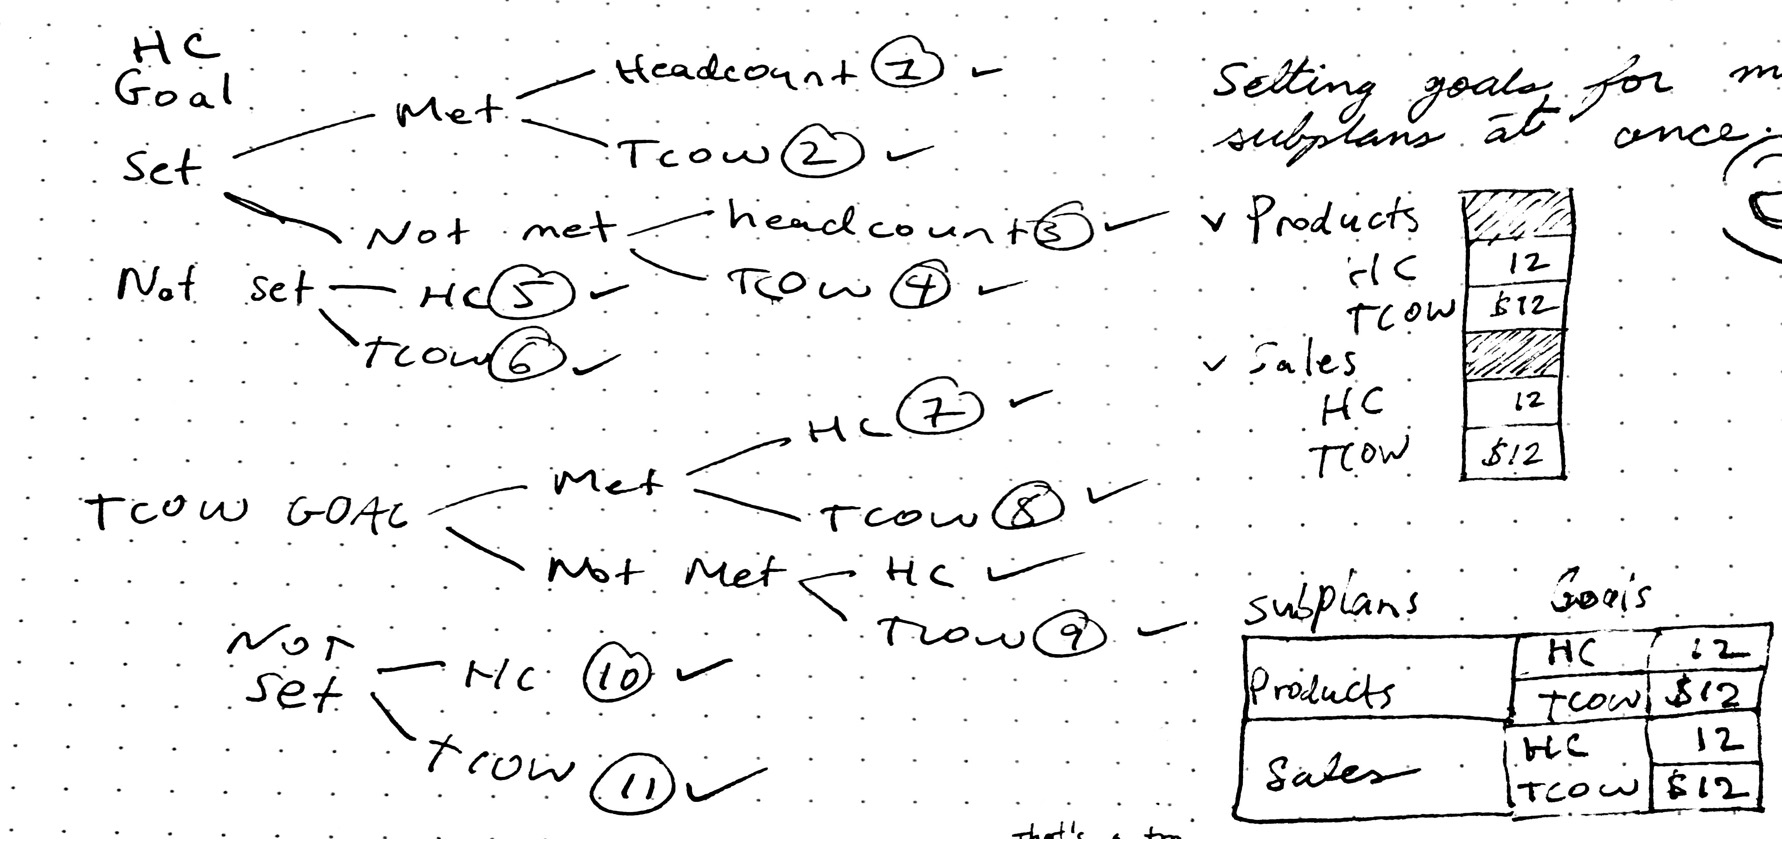 HC
Goal
Set
Met
Headcount 1
TCOW 2
Not met
headcount 3
TCOW 4
Not set
HC 5
TCOW 6
TCOW GOAL
Met
HC 7
TCOW 8
Not Met
HC
TCOW 9
NOT
Set
HC 10
TCOW 11
Setting goals for m
subplans at once.
Products
HC 12
TCOW $12
Sales
HC 12
TCOW $12
Subplans Goals
Products
HC 12
TCOW $12
Sales
HC 12
TCOW $12
That's a